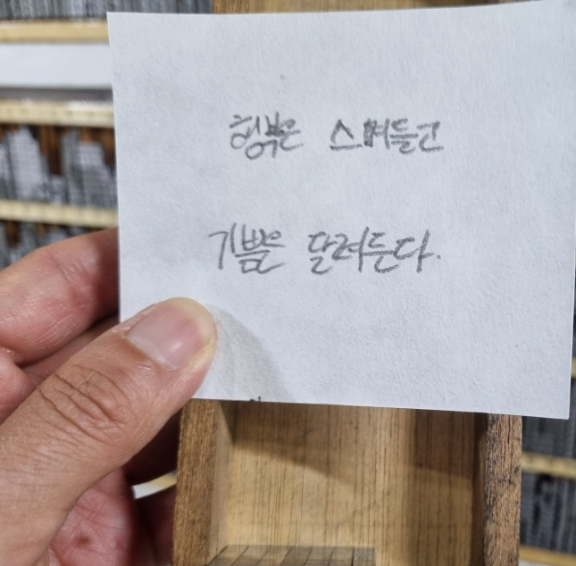 행복은 스며들고
기쁨은 달려든다.